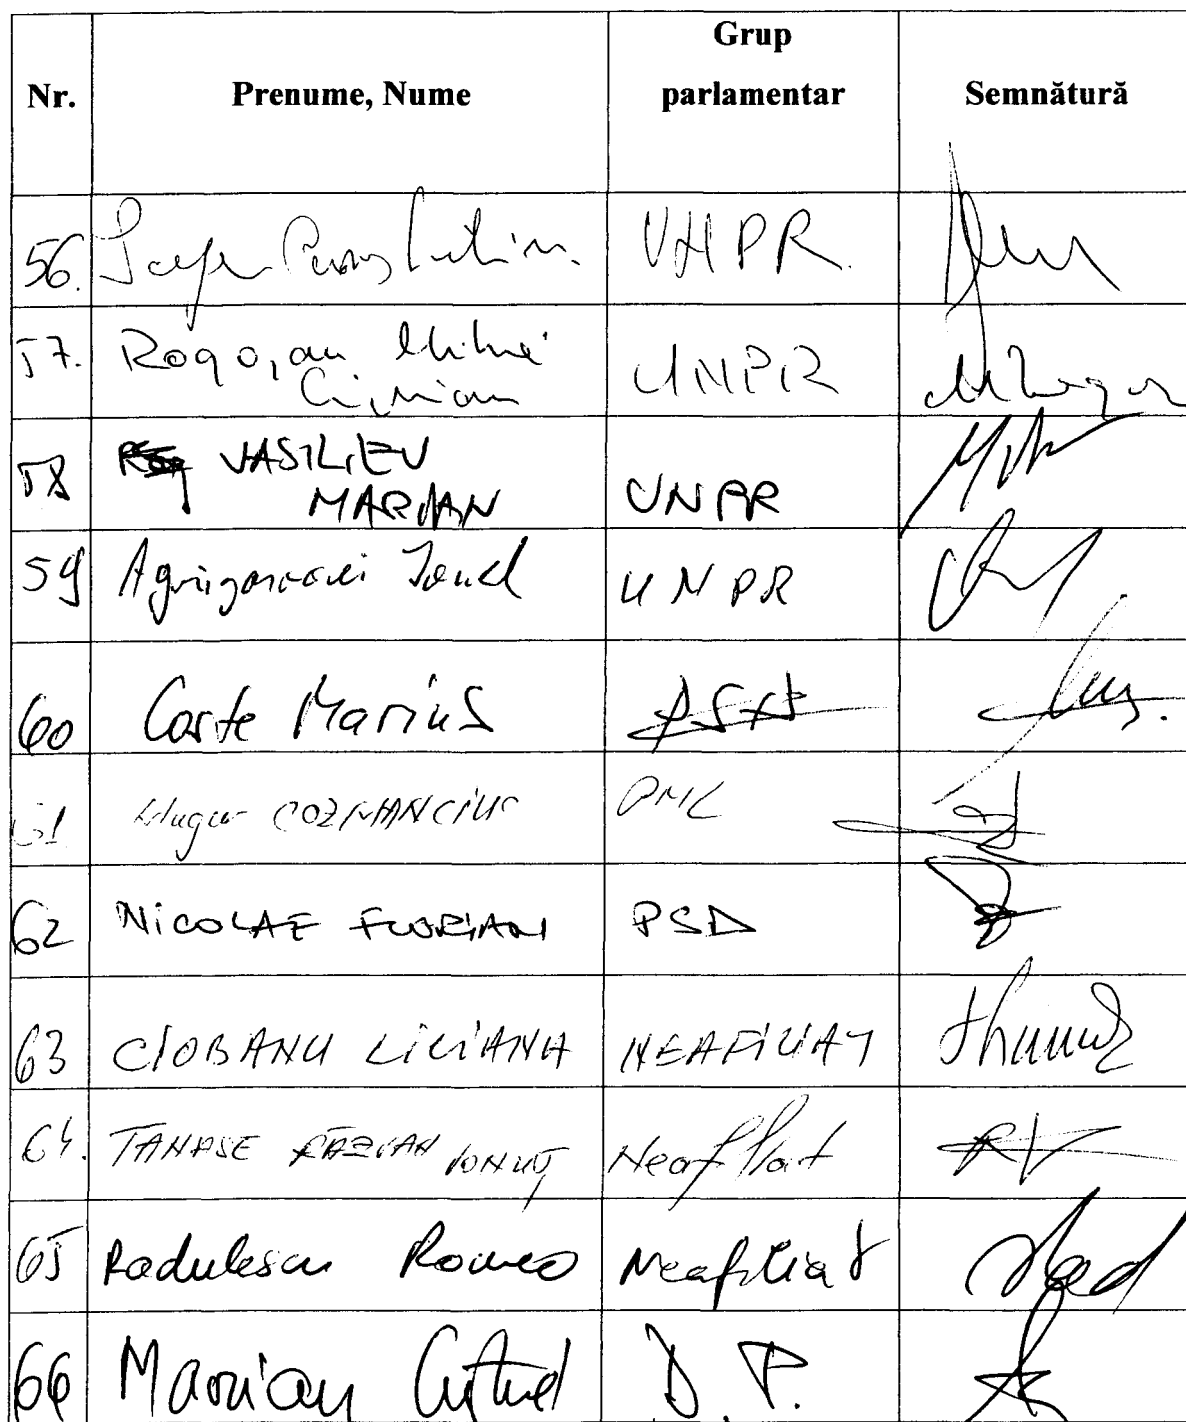 Nr. Prenume, Nume Grup parlamentar Semnătură
56. UNPR.
57. Rogojan Mihai Ciprian UNPR
58 VASILIEV MARIAN UNPR
59 Agrigoroaei Ionel UNPR
60 Marius
61 Mugur COZMANCIUC PNL
62 NICOLAE FLORIAN PSD
63 CIOBANU LILIANA NEAFILIAT
64. TANASE RĂZVAN IONUȚ Neafiliat
65 Radulescu Romeo Neafiliat
66 Marian D.P.